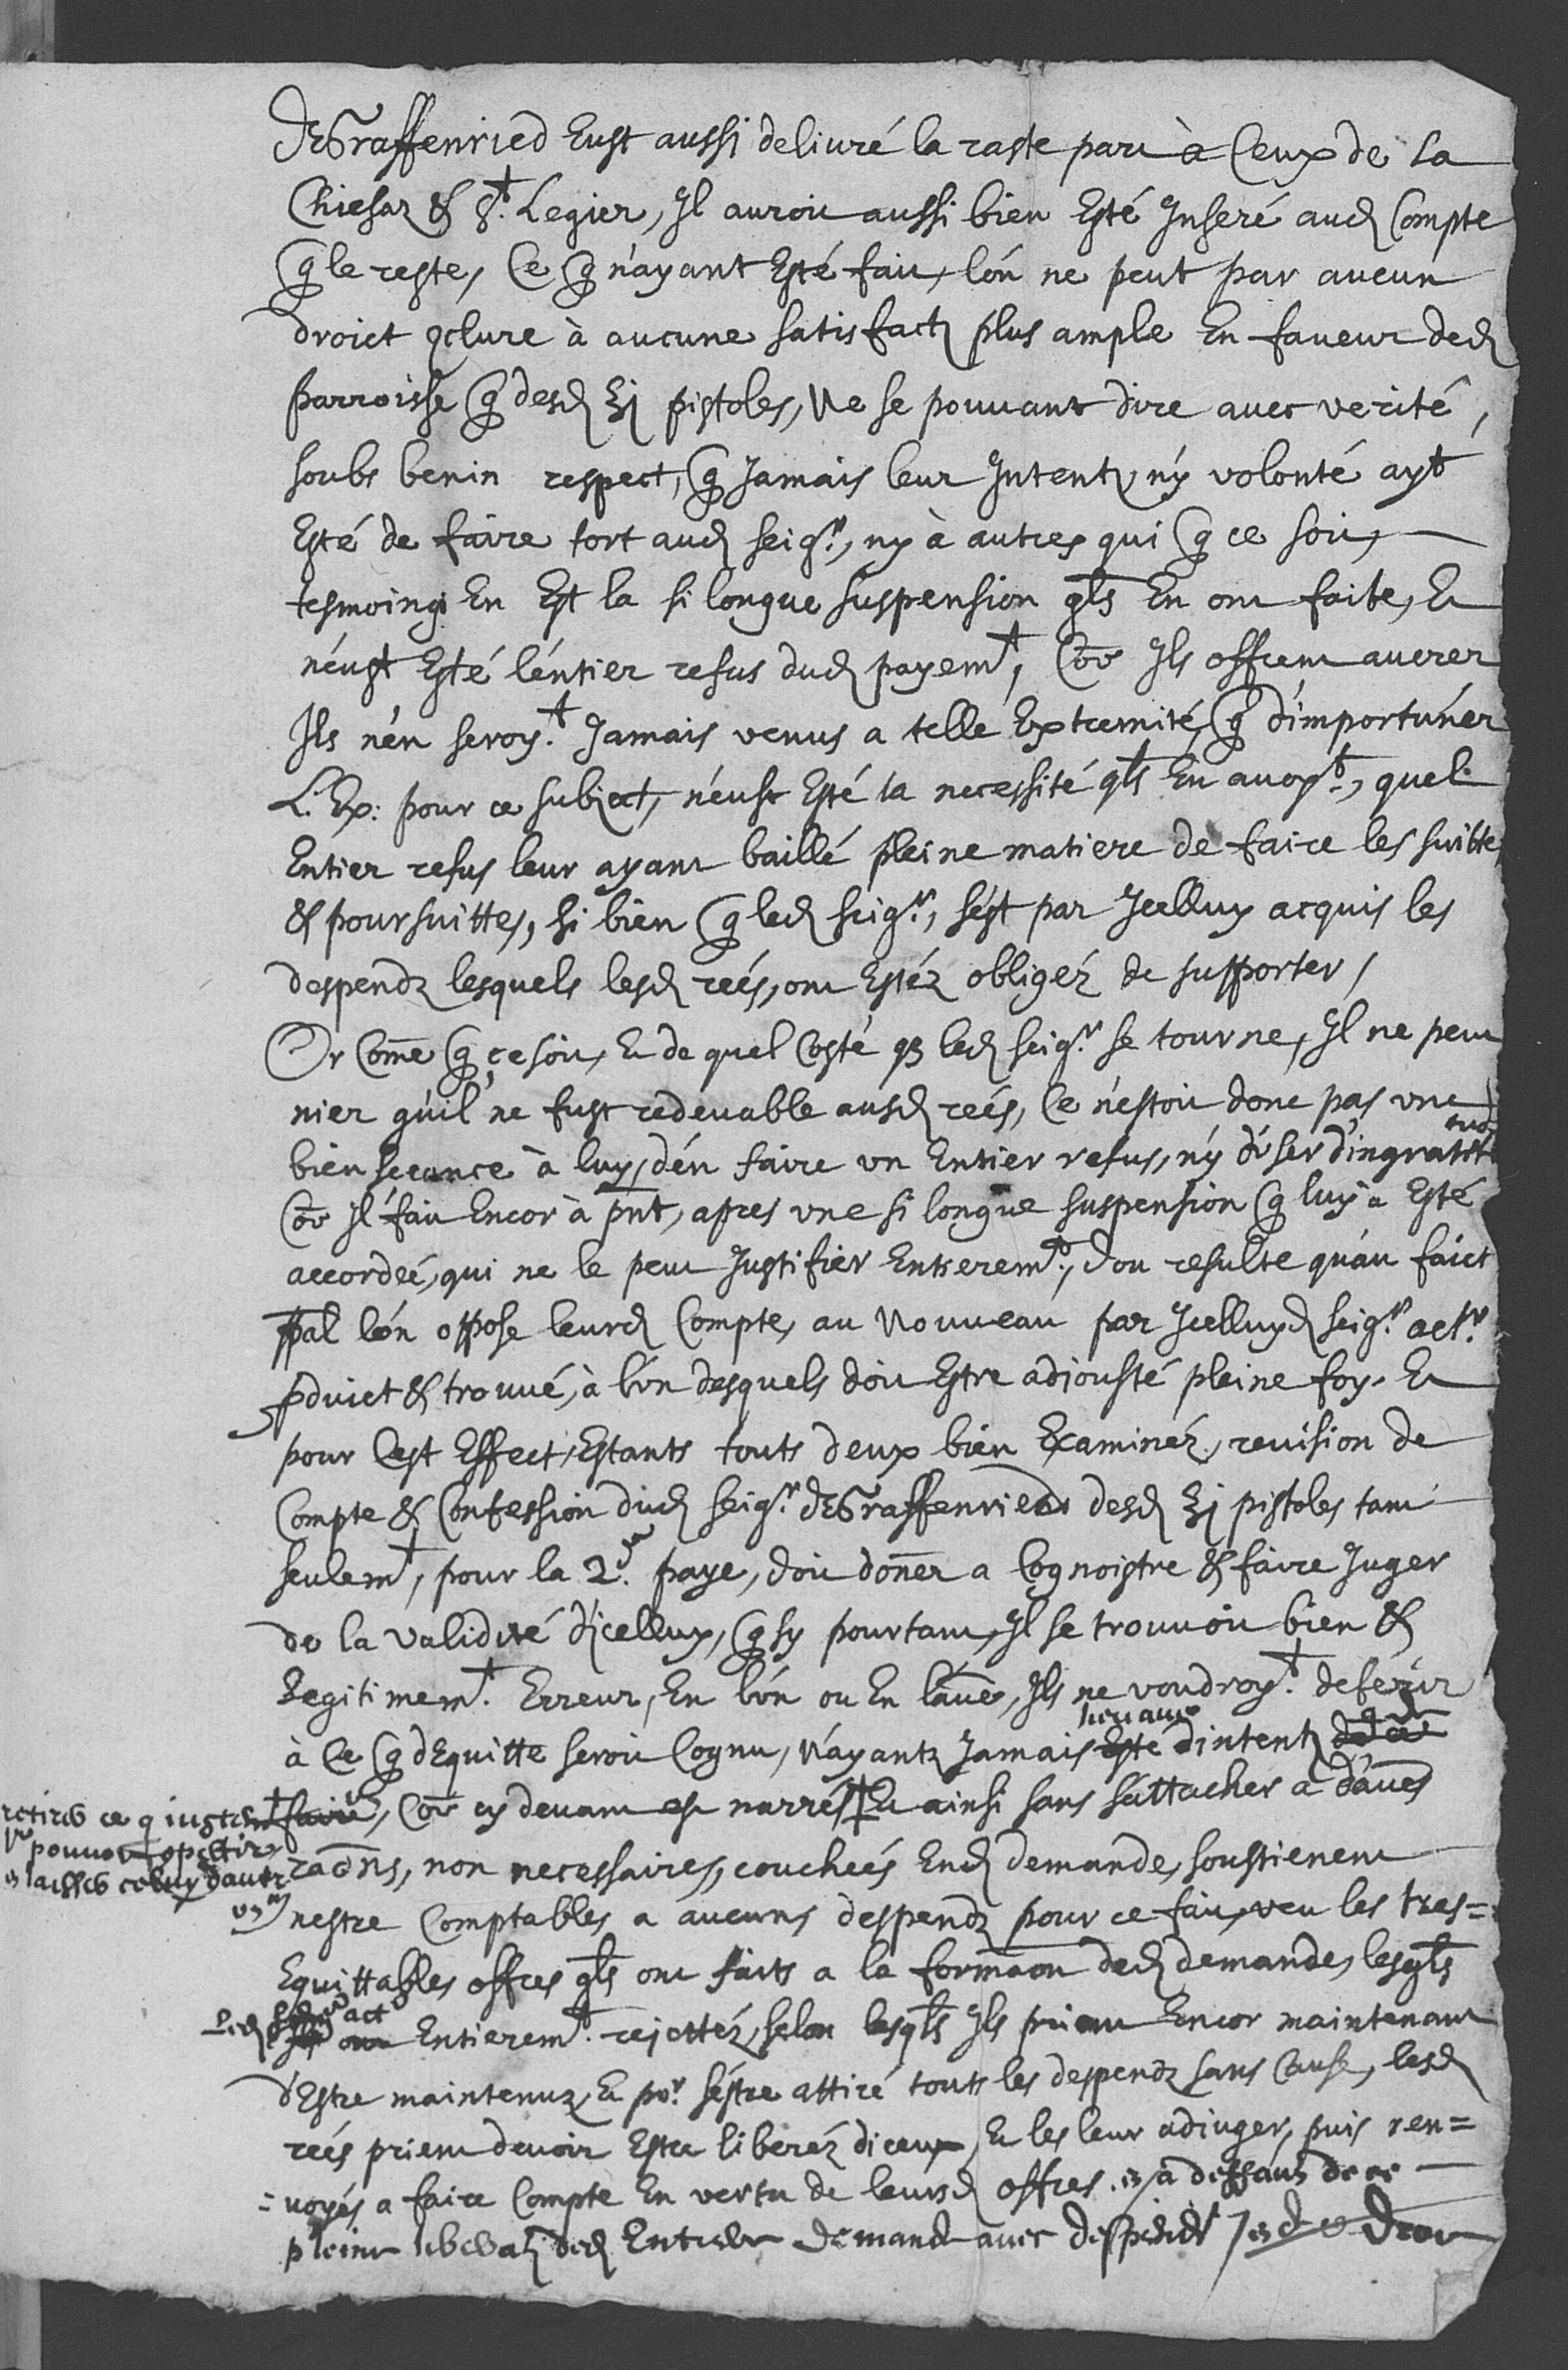 DeGraffenried Eust aussi deliuré la raste part à Ceux de La
Chiesaz & St. Legier, Il auroit aussi bien Esté Inseré aud Compte
q le reste, Ce q n'ayant Esté fait, l'ón ne peut par aucun
droict 9clure à aucune satisfact plus ample En faueur ded
parroisse q desd xj pistoles, Ne se pouuant dire auec verité,
soubs benin respect, q Jamais leur Intent ny volonté ayt
Esté de faire tort aud seigr., ny à autres qui q ce soit,
tesmoing En Est la si longue suspension qls En ont faite, Et
n'éust Esté l'éntier refus dud payemt, Coe Ils offrent auerer
Ils n'én seroyt. Jamais venus a telle Extremité, q d'importuner
L. Ex: pour ce subject, n'éust Esté la necessité qls En auoyt., quel
Entier refus leur ayant baillé pleine matiere de faire les suitte
& poursuittes, si bien q led seigr., s'ést par Icelluy acquis les
despendz lesquels lesd reés, ont Estéz obligéz de supporter,
Or Come q ce soit, Et de quel Costé q led seigr. se tourne, Il ne peut
nier qu'il ne fust redeuable ausd reés, Ce n'estoit donc pas vne
bien seeance à luy, d'én faire vn Entier refus, ny d'vser d'ingratitud
Coe Il fait Encor à pnt, apres vne si longue suspension q luy a Esté
accordeé, qui ne le peut Justifier Entieremt., d'ou resulte qu'au faict
ppal l'ón oppose leurd Compte, au Nouueau par Icelluyd seigr. actr.
pduict & trouué, à l'ún desquels doit Estre adjousté pleine foy. Et
pour Cest Effect, Estants touts deux bien Examinéz, reuision de
Compte & Confession dud seigr. DeGraffenried desd xj pistoles tant
seulemt, pour la 2de. paye, doit doner a Cognoistre & faire Juger
de la validité d'icelluy, q sy pourtant, Il se trouuoit bien &
Legitimemt. Erreur, En l'ún ou En l'áue, Ils ne voudroyt. deferir
à Ce q d'Equitte seroit Cognu, N'ayantz Jamais Esté d'intent
faire, Coe cy deuant est narrés, Et ainsi sans s'attacher a d'áues
retirer ce q iustemt
raons, non necessaires, coucheés End demande, soustienent
n'estre Comptables a aucuns despendz pour ce fait, veu les tres=
Equittables offres qls ont faits a la formaon ded demande, lesqls
Led seigr act
Ils ont Entieremt. rejettéz, selon lesqls Ils prient Encor maintenant
d'Estre maintenuz, Et por. s'éstre attiré touts les despendz sans Cause, lesd
reés prient deuoir Estre liberéz d'iceux, Et les leur adiuger, puis ren=
=uoyés a faire Compte En vertu de leursd offres. Et a deffaut de ce
pleine liberat ded Entiere demande auec despends